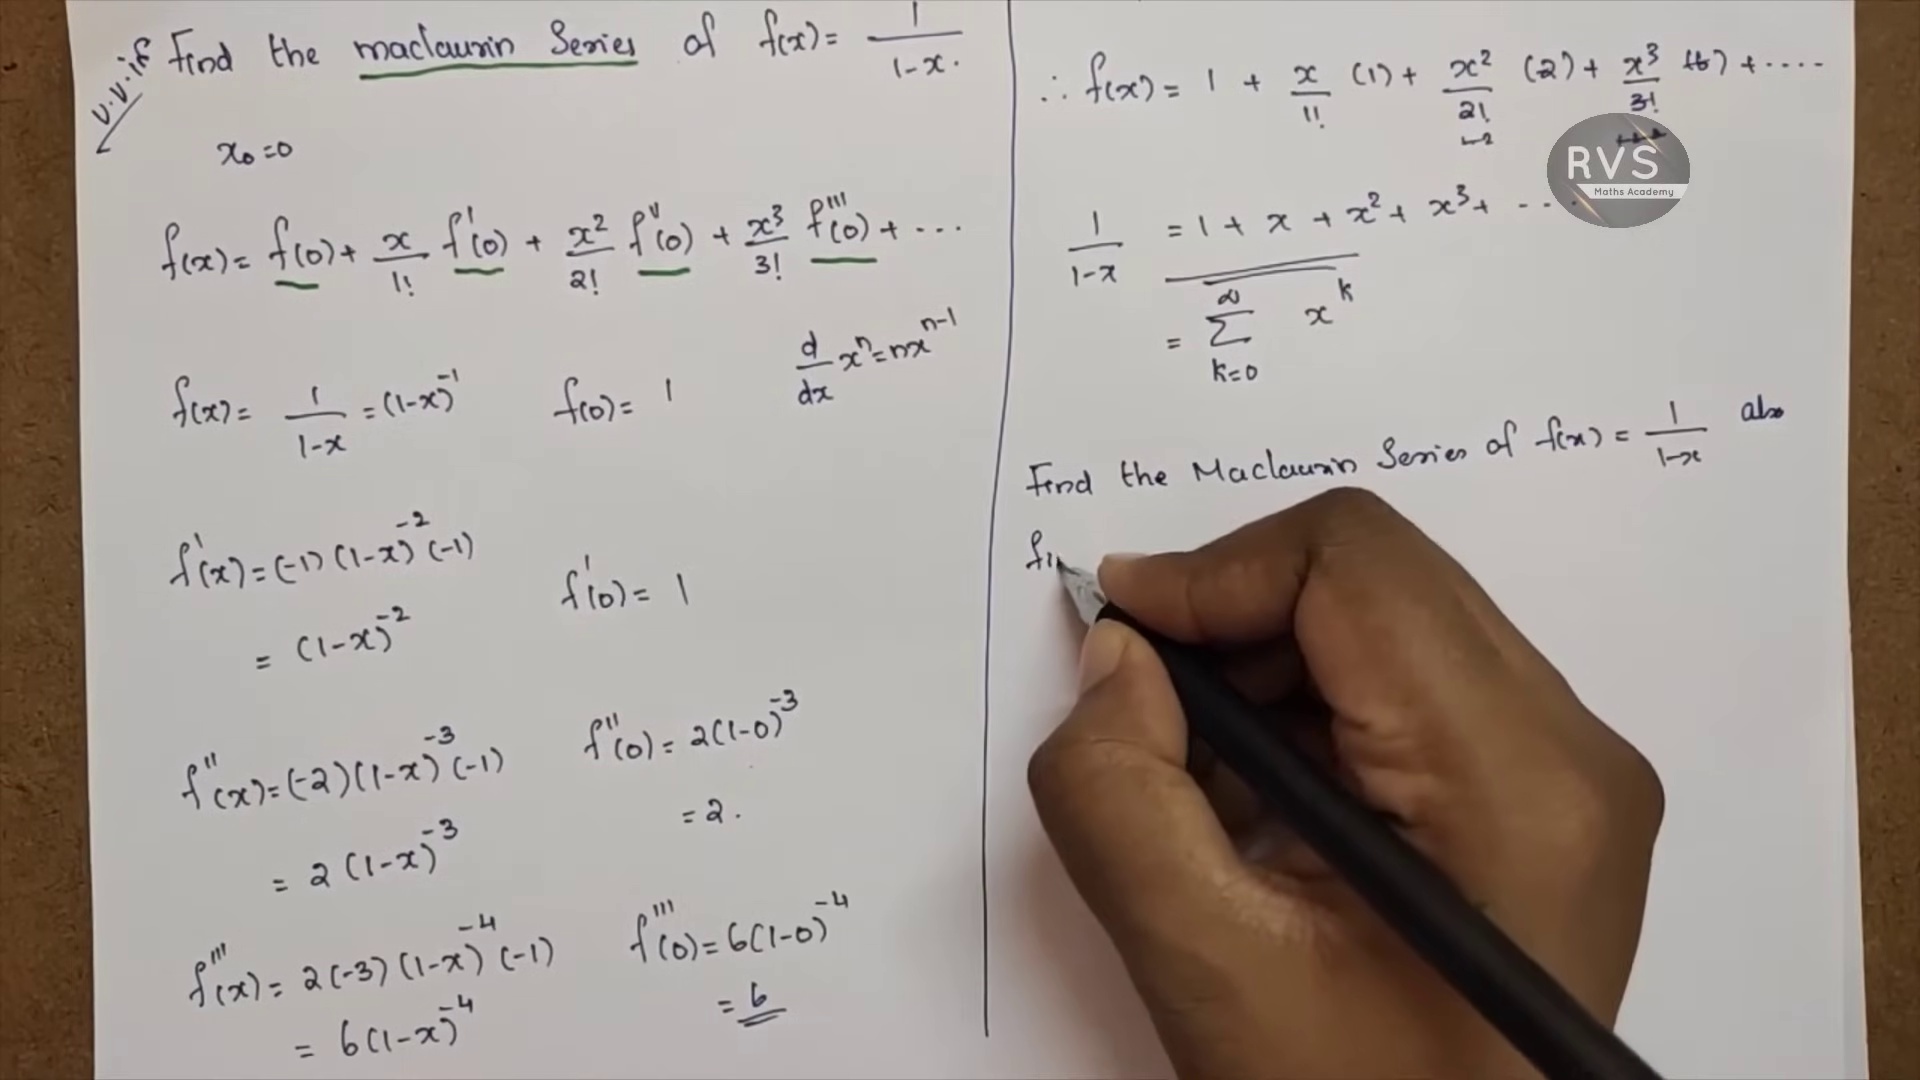 v.v.if
Find the maclaurin Series of f(x) = 1/1-x.
x₀=0
f(x) = f(0) + x/1! f'(0) + x²/2! f''(0) + x³/3! f'''(0) + ...
d/dx xⁿ = nxⁿ⁻¹
f(x) = 1/1-x = (1-x)⁻¹ f(0) = 1
f'(x) = (-1)(1-x)⁻²(-1)
= (1-x)⁻² f'(0) = 1
f''(x) = (-2)(1-x)⁻³(-1) f''(0) = 2(1-0)⁻³
= 2(1-x)⁻³ = 2.
f'''(x) = 2(-3)(1-x)⁻⁴(-1) f'''(0) = 6(1-0)⁻⁴
= 6(1-x)⁻⁴ = 6
∴ f(x) = 1 + x/1! (1) + x²/2! (2) + x³/3! (6) + ....
RVS
Maths Academy
1/1-x = 1 + x + x² + x³ + ...
= ∞ Σ k=0 x^k
Find the Maclaurin Series of f(x) = 1/1-x also